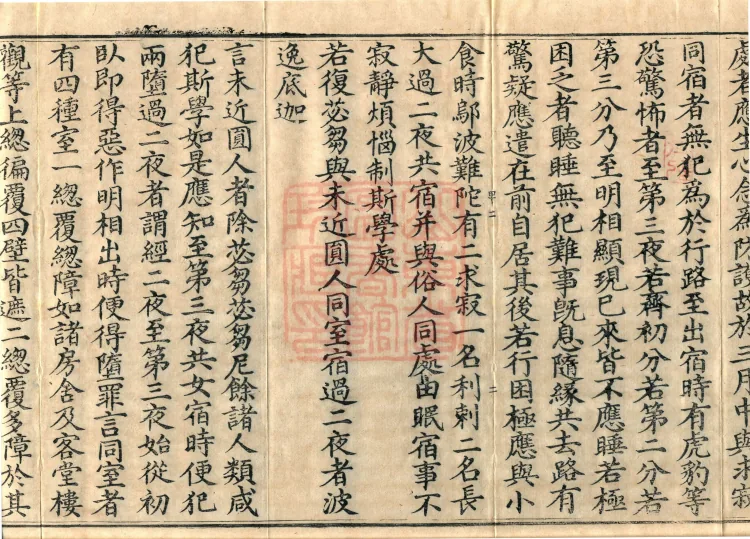 處者應生心念爲防護故於三月中與求寂
同宿者無犯爲於行路至出宿時有虎豹等
恐驚怖者至第三夜若齊初分若第二分若
第三分乃至明相顯現已來皆不應睡若極
困之者聽睡無犯難事旣息隨緣共去路有
驚疑應遣在前自居其後若行困極應與小
食時鄔波難陀有二求寂一名利剌二名長
大過二夜共宿并與俗人同處由眠宿事不
寂靜煩惱制斯學處
若復苾芻與未近圓人同室宿過二夜者波
逸底迦
言未近圓人者除苾芻苾芻尼餘諸人類咸
犯斯學如是應知至第三夜共女宿時便犯
兩墮過二夜者謂經二夜至第三夜始從初
臥即得惡作明相出時便得墮罪言同室者
有四種室一緫覆緫障如諸房舍及客堂樓
觀等上緫徧覆四壁皆遮二緫覆多障於其